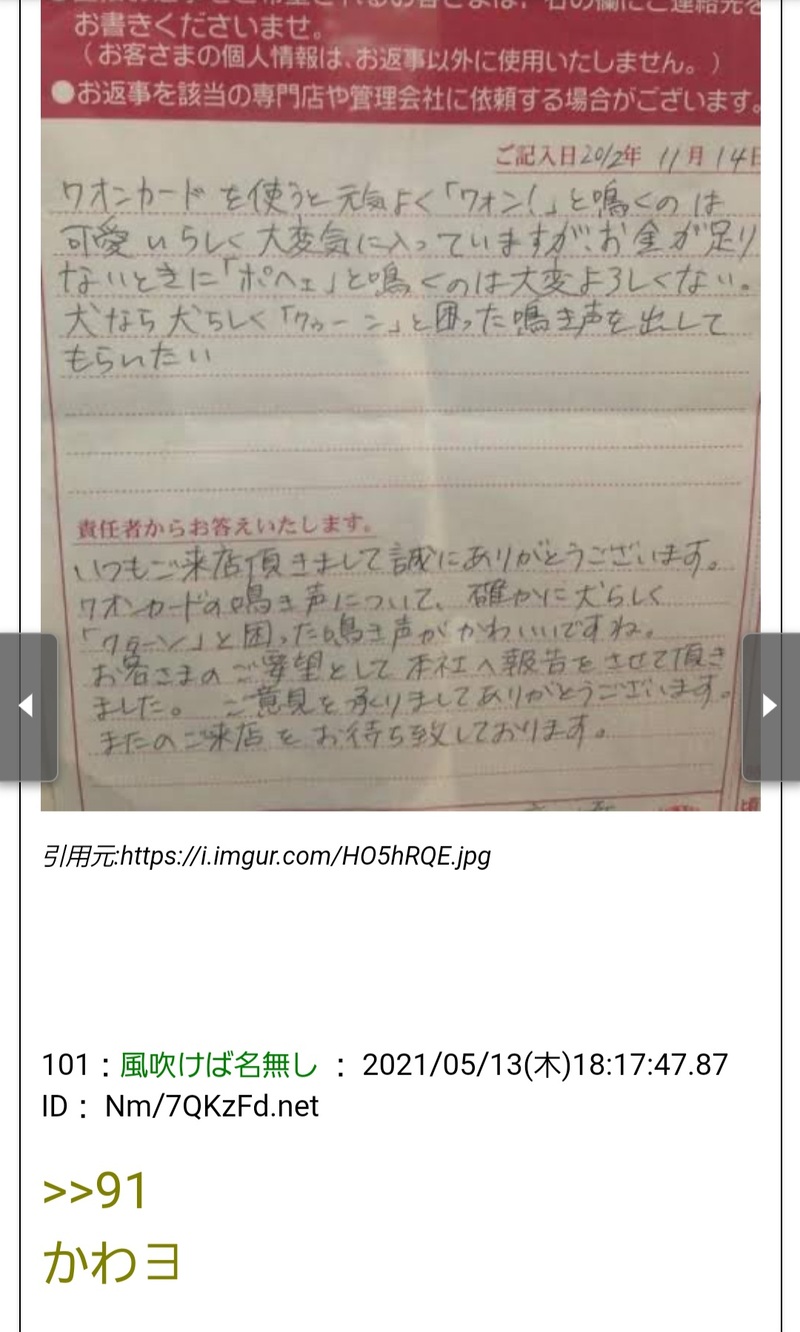 お書きくださいませ。
（お客さまの個人情報は、お返事以外に使用いたしません。）
●お返事を該当の専門店や管理会社に依頼する場合がございます。
ご記入日2012年 11月14日
ワオンカードを使うと元気よく「ワォン!」と鳴くのは
可愛いらしく大変気に入っていますが、お金が足り
ないときに「ポヘェ」と鳴くのは大変よろしくない。
犬なら犬らしく「クゥーン」と困った鳴き声を出して
もらいたい
責任者からお答えいたします。
いつもご来店頂きまして誠にありがとうございます。
ワオンカードの鳴き声について、確かに犬らしく
「クゥーン」と困った鳴き声がかわいいですね。
お客さまのご要望として本社へ報告をさせて頂き
ました。 ご意見を承りましてありがとうございます。
またのご来店をお待ち致しております。
引用元:https://i.imgur.com/HO5hRQE.jpg
101：風吹けば名無し ： 2021/05/13(木)18:17:47.87
ID： Nm/7QKzFd.net
>>91
かわヨ